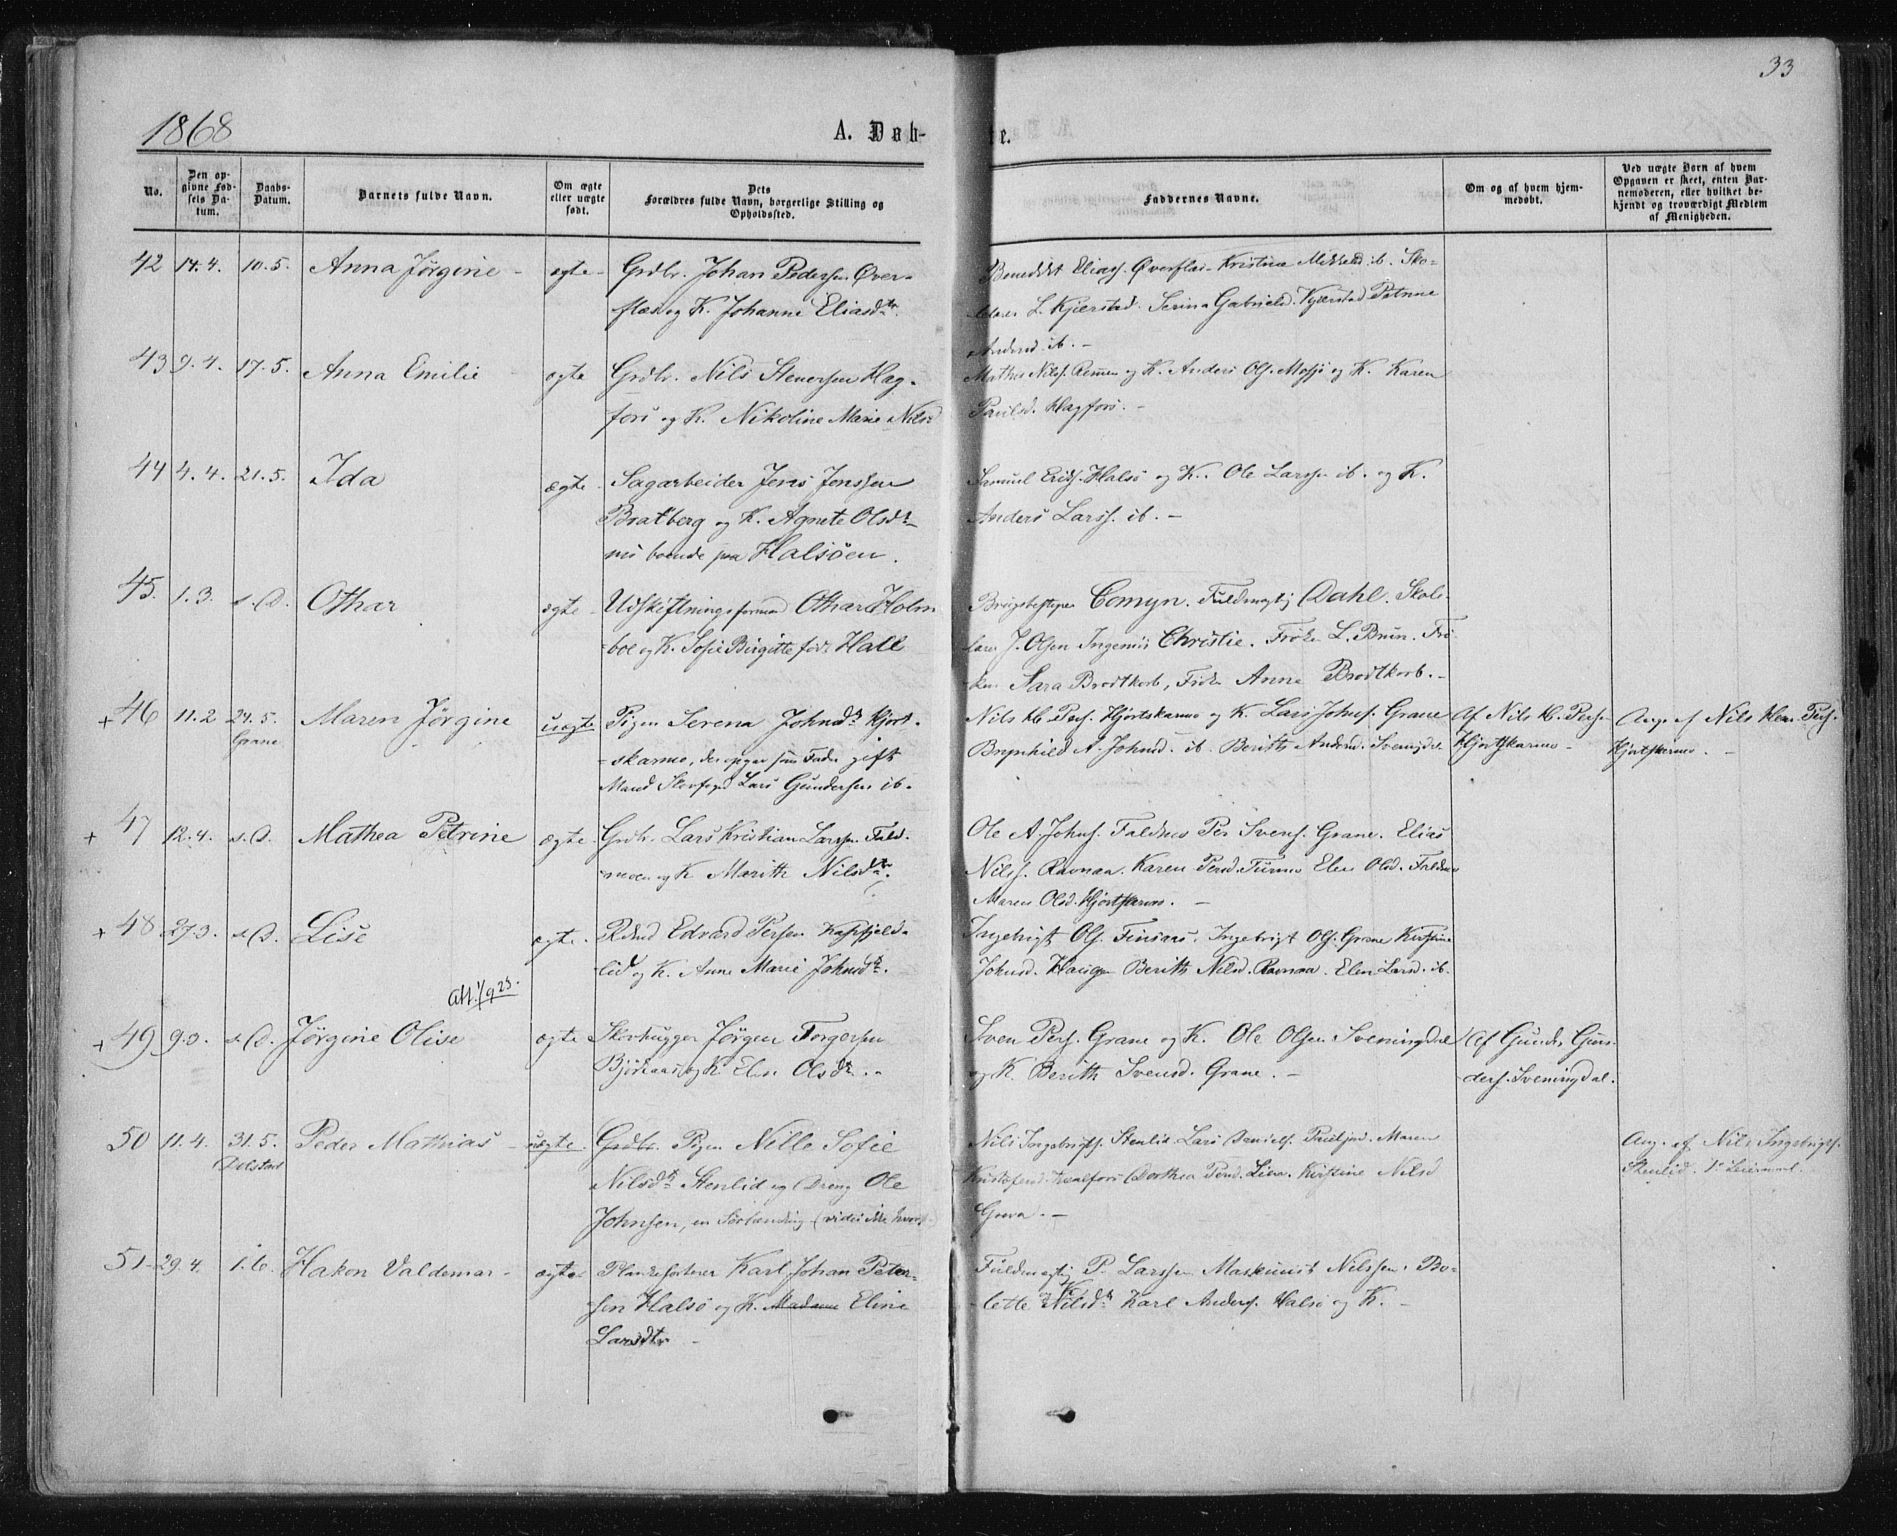 33
1868
A. Døb-
te.
No.
Den op-
givne Fød-
sels Da-
tum.
Daabs-
Datum.
Barnets fulde Navn.
Om ægte
eller uægte
født.
Dets
Forældres fulde Navn, borgerlige Stilling og
Opholdssted.
Faddernes Navne.
Om og af hvem hjem-
medøbt.
Ved uægte Børn af hvem
Opgaven er skeet, enten Bar-
nemoderen, eller hvilket be-
kjendt og troværdigt Medlem
af Menigheden.
42 14.4. 10.5. Anna Jørgine - ægte - Grdbr. Johan Pedersen Øver-
flæs og K. Johanne Eliasdtr.
Benedikt Eliass. Øverflæs - Kristina ib. Sko-
lelærer L. Kjærstad. Serina Gabrielsd. Kjærstad Petrine
Andersd. ib. -
43 9.4. 17.5. Anna Emilie ægte Grdbr. Nils Stenersen Hag-
fors og K. Nikoline Marie Nilsd
Mathis Nilss. Remen og K. Anders Ols. Mosjø og K. Karen
Paulsd. Hagfors. -
44 4.4. 21.5. Ida ægte - Sagarbeider Jens Jenssen
Bratberg og K. Agnete Olsdtr
nu boende paa Halsøen.
Samuel Erichs. Halsø og K. Ole Larssen ib. og K.
Anders Larss. ib. -
45. 1.3. s.D. Othar ægte - Udskiftningsformd Othar Holm-
boe og K. Sofie Birgitte født Hall
Brugsbestyrer Comyn. Fuldmægtig Dahl. Skole-
lærer J. Olsen Ingeniør Christie. Frøken L. Brun. Frø-
ken Sara Brodtkorb, Frøken Anna Brodtkorb. -
+46 11.2 24.5. Maren Jørgine uægte Pigen Serena Johnsdtr Hjort-
Grane
skarmo, der opgav som Fader gift
Mand Skovfoged Lars Gundersen ib.
Nils H. Pers. Hjortskarmo og K. Lars Johns. Grane
Brynhild A. Johnsd. ib. Berith Andersd. Sveningdal
Af Nils H. Pers.
Hjortskarmo -
Ang. af Nils Hen. Pers.
Hjortskarmo. -
+ 47 12.4. s.D. Mathea Petrine ægte - Grdbr. Lars Kristian Larssen Fald-
moen og K. Marith Nilsdtr.
Ole A. Johns. Faldmo Per Svens. Grane. Elias
Nilss. Ravnaa. Karen Persd. Turmo Elen Olsd. Faldmo
Maren Olsd. Hjortskarmo. -
+ 48 27.3. s.D. Lise ægte. Rdmd Edvard Persen Kapfjeld-
lid og K. Anne Marie Johnsdtr.
Ingebrigt Ols. Finsaas. Ingebrigt Ols. Grane Kirstine
Johnsd. Haugen Berith Nilsd. Ravnaa. Elen Larsd. ib.
att. 1/9 23.
+ 49 9.3. s.D. Jørgine Olise ægte Skovhugger Jørgen Torgersen
Bjøraas og K. Elen Olsdtr. -
Sven Pers. Grane og K. Ole Olsen Sveningdal
og K. Berith Svensd. Grane. -
Af Gunder Gun-
ders. Sveningdal.
50 11.4. 31.5. Peder Mathias - uægte. Grdbr. Pigen Nille Sofie
Dolstad
Nilsdtr Stenlid og Dreng Ole
Johnsen, en Sørlænding (vides ikke hvorfra)
Nils Ingebrigts. Stenlid Lars Daniels. Maren
Kristofersd. Kvalfors Dorthea Persd. Lien. Kirstine Nilsd
Grova. -
Ang. af Nils Ingebrigts.
Stenlid. 1ste Leiermaal.
51 29.4. 1.6. Hakon Valdemar - ægte - Plankesorterer Karl Johan Peter-
sen Halsø og K. Madame Eline
Larsdtr -
Fuldmægtig P. Larssen Maskinist Nilssen. Bo-
lette K Nilsdtr Karl Anders. Halsø og K. -